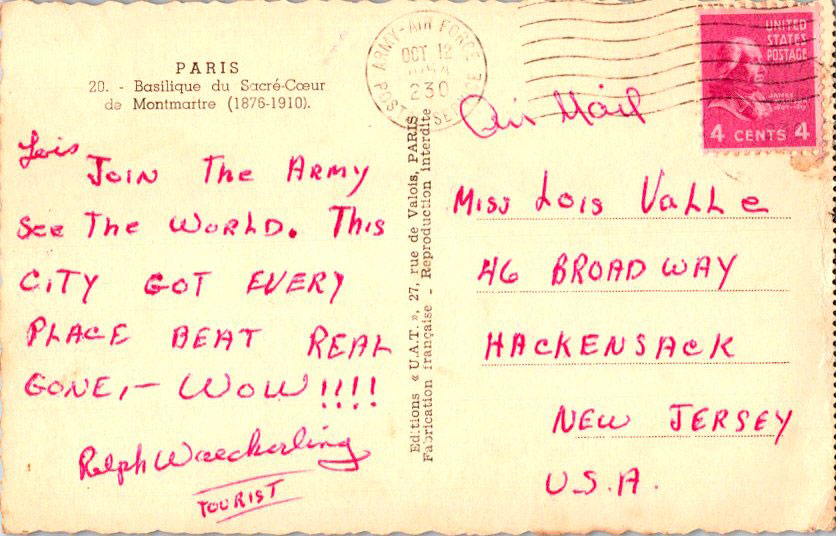 PARIS
20. - Basilique du Sacré-Cœur
de Montmartre (1876-1910).
Lois
Join The Army
See The World. This
City Got Every
Place Beat Real
Gone,— Wow!!!!
Ralph Waeckerling
Tourist
Editions « U.A.T. », 27, rue de Valois, PARIS
Fabrication française - Reproduction interdite
ARMY-AIR FORCE
POSTAL SERVICE
OCT 12
230
UNITED
STATES
POSTAGE
4 CENTS 4
Air Mail
Miss Lois Valle
46 Broadway
Hackensack
New Jersey
U.S.A.